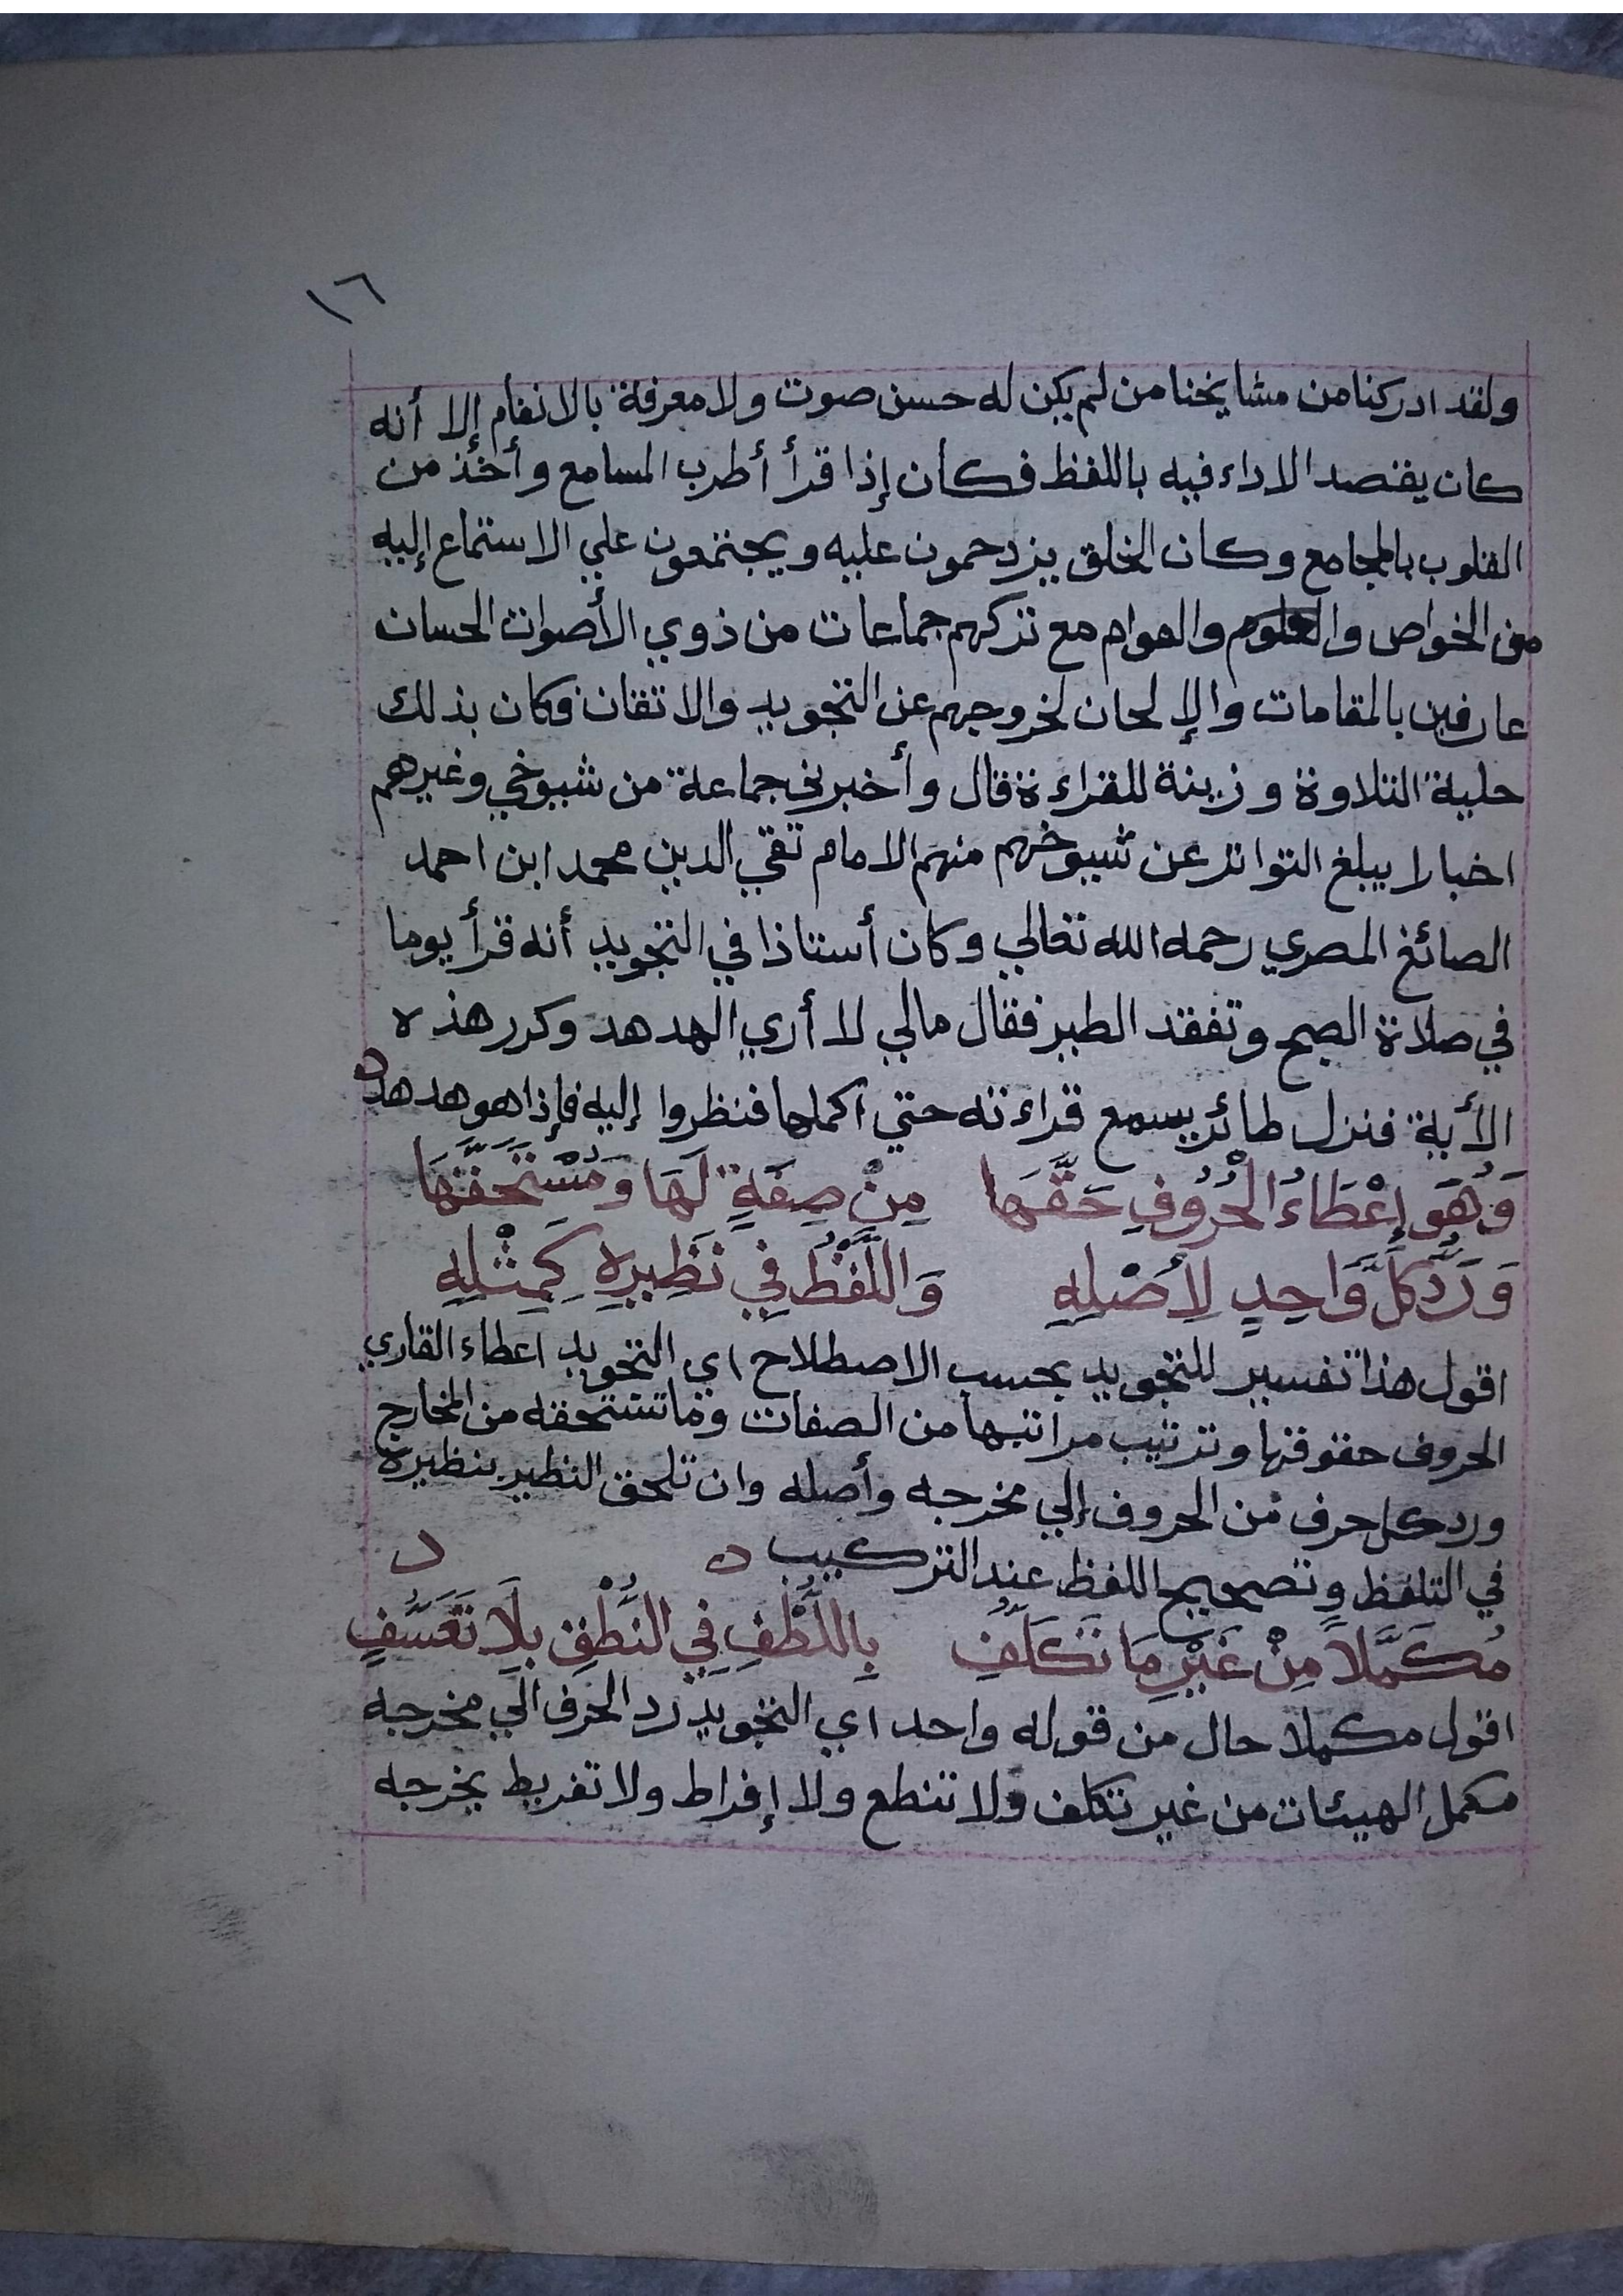 ١٦
ولقد ادركنا من مشايخنا من لم يكن له حسن صوت ولا معرفة بالانغام إلا أنه
كان يقتصد الاداء فيه باللفظ فكان إذا قرأ أطرب المسامع وأخذ من
القلوب بالمجامع وكان الخلق يزدحمون عليه ويجتمعون علي الاستماع إليه
من الخواص والعوام مع تركهم جماعات من ذوي الأصوات الحسان
عارفين بالمقامات والإلحان لخروجهم عن التجويد والاتقان فكان بذلك
حلية التلاوة وزينة للقراءة قال وأخبرني جماعة من شيوخي وغيرهم
اخبارا يبلغ التواتر عن شيوخهم منهم الامام تقي الدين محمد ابن احمد
الصائغ المصري رحمه الله تعالي وكان أستاذا في التجويد أنه قرأ يوما
في صلاة الصبح وتفقد الطير فقال مالي لا أري الهدهد وكرر هذه
الأية فنزل طائر يسمع قراءته حتي اكملها فنظروا إليه فإذا هو هدهد
وَهُوَ إِعْطَاءُ الْحُرُوفِ حَقَّهَا مِنْ صِفَةٍ لَهَا وَمُسْتَحَقَّهَا
وَرَدُّ كُلِّ وَاحِدٍ لِأَصْلِهِ وَاللَّفْظُ فِي نَظِيرِهِ كَمِثْلِهِ
اقول هذا تفسير للتجويد بحسب الاصطلاح اي التجويد اعطاء القاري
الحروف حقوقها وترتيب مراتبها من الصفات وما تستحقه من المخارج
ورد كل حرف من الحروف إلي مخرجه وأصله وان تلحق النظير بنظيرة
في التلفظ وتصحيح اللفظ عند التركيب
مُكَمَّلاً مِنْ غَيْرِ مَا تَكَلُّفِ بِاللُّطْفِ فِي النُّطْقِ بِلَا تَعَسُّفِ
اقول مكملا حال من قوله واحد اي التجويد رد الحرف الي مخرجه
مكمل الهيئات من غير تكلف ولا تنطع ولا إفراط ولا تفريط يخرجه